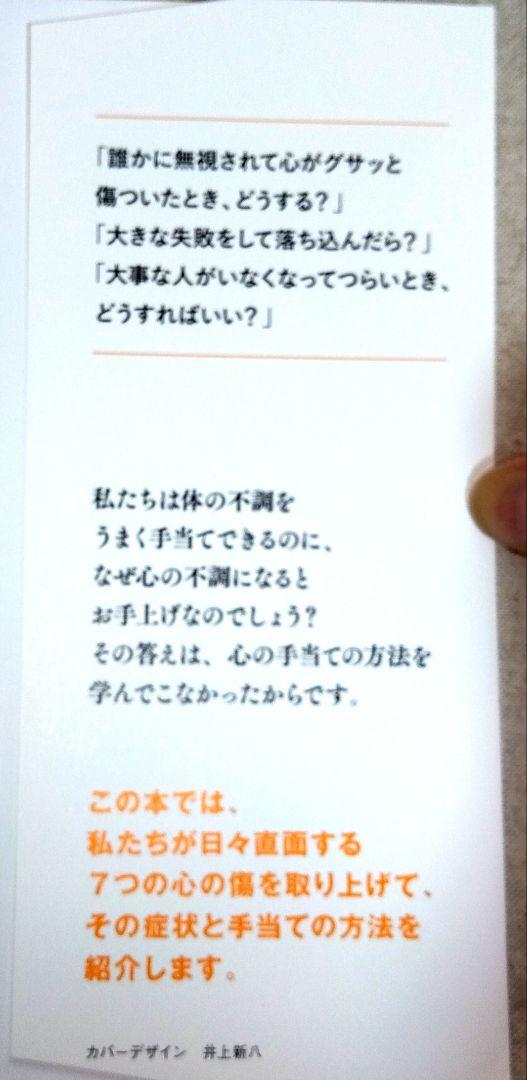 「誰かに無視されて心がグサッと
傷ついたとき、どうする？」
「大きな失敗をして落ち込んだら？」
「大事な人がいなくなってつらいとき、
どうすればいい？」
私たちは体の不調を
うまく手当てできるのに、
なぜ心の不調になると
お手上げなのでしょう？
その答えは、心の手当ての方法を
学んでこなかったからです。
この本では、
私たちが日々直面する
７つの心の傷を取り上げて、
その症状と手当ての方法を
紹介します。
カバーデザイン　井上新八